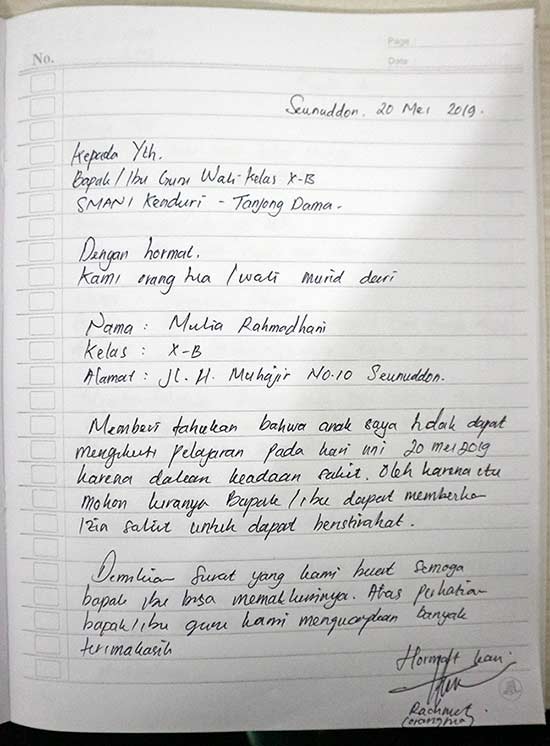 Page :
No.
Date :
Seunuddon, 20 Mei 2019.
Kepada Yth.
Bapak/Ibu Guru Wali Kelas X-B
SMAN 1 Kenduri - Tanjong Dama.
Dengan hormat.
Kami orang tua /wali murid dari
Nama : Mulia Rahmadhani
Kelas : X-B
Alamat : Jl. H. Muhajir No.10 Seunuddon.
Memberi tahukan bahwa anak saya tidak dapat
mengikuti pelajaran pada hari ini 20 mei 2019
karena dalam keadaan sakit. Oleh karena itu
mohon kiranya Bapak/ibu dapat memberikan
Izin sakit untuk dapat beristirahat.
Demikian surat yang kami buat semoga
bapak ibu bisa memakluminya. Atas perhatian
bapak/ibu guru kami mengucapkan banyak
terimakasih
Hormat kami.
Rachmat.
(orangtua)